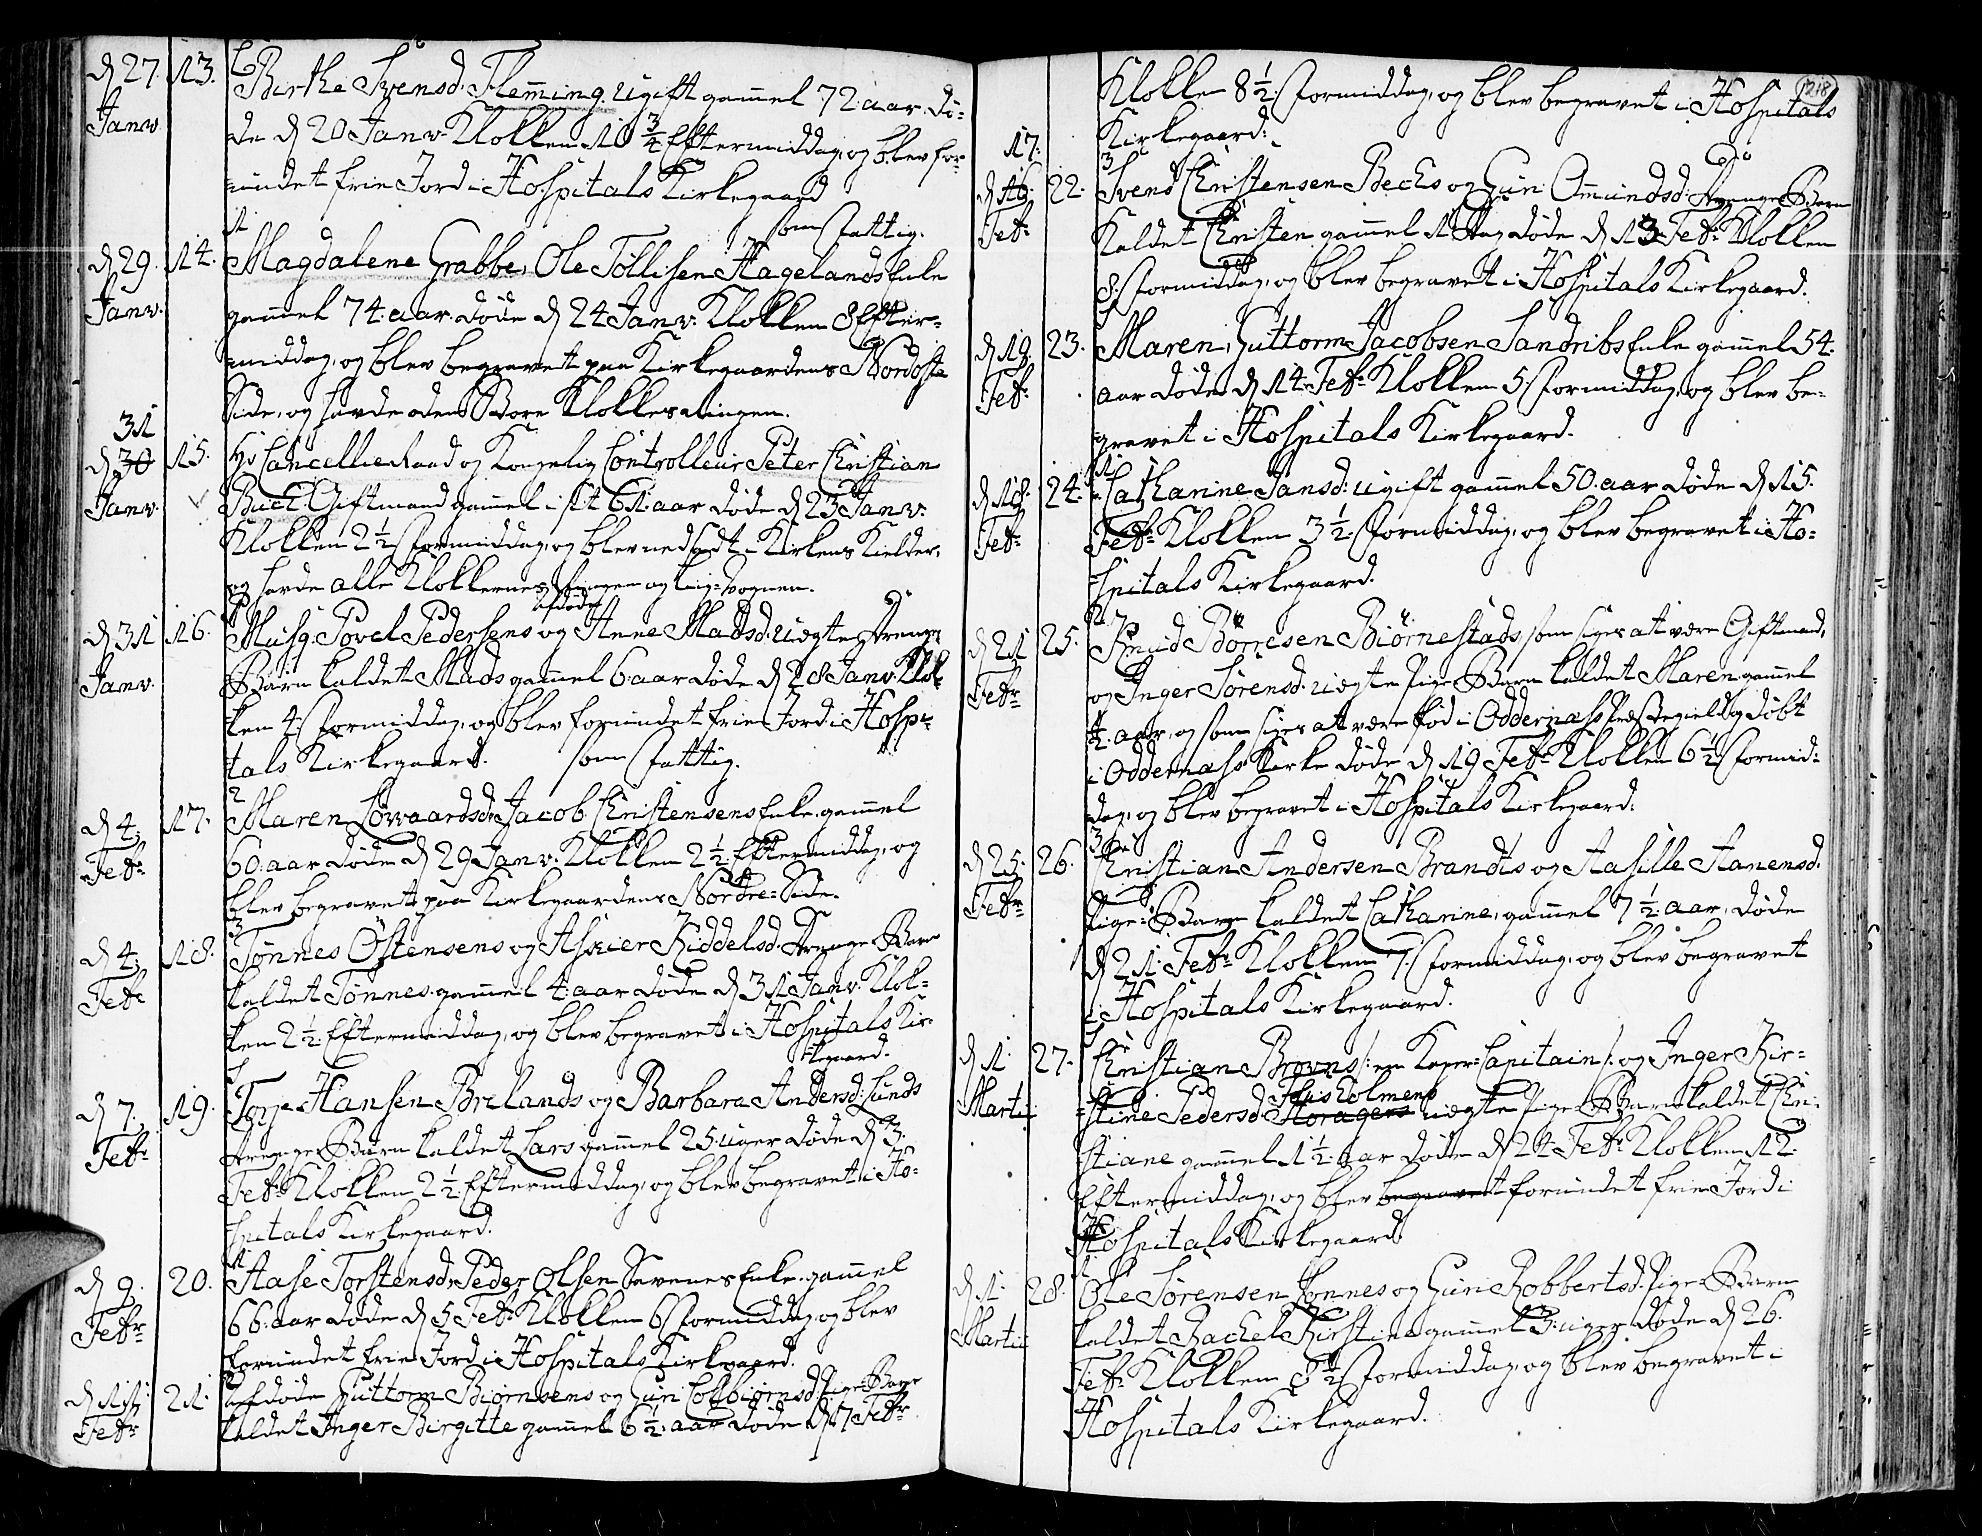 d 27. 13. Birthe Svensd. Flemming ugift gammel 72 aar dö-
Janv. de d 20 Janv. Klokken 10 3/4 Eftermiddag, og blev for-
undet frie Jord i Hospitals Kirkegaard
som fattig.
d 29. 14. Magdalene Grabbe, Ole Töllisen Hagelands Enke
Janv. gammel 74 aar döde d 24 Janv. Klokken 8 Efter-
middag, og blev begravet paa Kirkegaardens Nordoste
Side, og havde den Store Klokkes ringen.
31
d 30 15. Hr Cancellieraad og Kongelig Controlleur Peter Christian
Janv. Buch Giftmand gammel i sit 61 aar döde d 23 Janv.
Klokken 2 1/2 formiddag, og blev nedsadt i Kirkens Kielder,
og havde alle Klokkernes ringen og Liig-Vognen.
afdöde
d 31 16. Musq. Povel Pedersens og Anne Madsd. uægte Drenge
Janv. Barn kaldet Mads gammel 6 aar döde d 28 Janv. Klok-
ken 4 formiddag, og blev forundet frie Jord i Hospi-
tals Kirkegaard. som fattig.
2
d 4. 17. Maren Sovaardsd. Jacob Christensens Enke gammel
Febr. 60 aar döde d 29 Janv. Klokken 2 1/2 Eftermiddag, og
blev begravet paa Kirkegaardens Nordre-Side.
3
d 4. 18. Tönnes Östensens og Asier Kiddelsd. Drenge Barn
Febr. kaldet Tönnes gammel 4 aar döde d 31 Janv. Klok-
ken 2 1/2 Eftermiddag, og blev begravet i Hospitals Kir-
kegaard.
d 7. 19. Torje Hansen Brelands og Barbara Andersd. Lunds
Febr. Drenge Barn kaldet Lars gammel 25 uger döde d 3.
Febr. Klokken 2 1/2 Eftermiddag, og blev begravet i Ho-
spitals Kirkegaard.
d 9. 20. Aase Torstensd. Peder Olsen Sevenes Enke gammel
Febr. 66 aar döde d 5 Febr. Klokken 6 formiddag, og blev
forundet frie Jord i Hospitals Kirkegaard.
d 11 21. afdöde Guttorm Biörnsens og Guri Colbiörnsd. Pige-Barn
Febr. kaldet Inger Birgitte gammel 6 1/2 aar döde d 7 Febr.
218
Klokken 8 1/2 formiddag, og blev begravet i Hospitals
Kirkegaard.
17.
3
d 16 22. Svend Christensen Bechs og Guri Omundsd. Drenge Barn
Febr. kaldet Christen gammel 1 Dag döde d 13 Febr. Klokken
8 formiddag, og blev begravet i Hospitals Kirkegaard.
d 19. 23. Maren, Guttorm Jacobsen Sandribs Enke gammel 54.
Febr. aar döde d 14 Febr. Klokken 5 formiddag, og blev be-
gravet i Hospitals Kirkegaard.
d 18. 24. Catharine Jansd. ugift gammel 50 aar döde d 15.
Febr. Febr. Klokken 3 1/2 formiddag, og blev begravet i Ho-
spitals Kirkegaard.
d 21 25. Knud Börresen Biörnestads, som siges at være Giftmand,
Febr. og Inger Sörensd. uægte Pige Barn kaldet Maren gammel
1/2 aar, og som siges at være föd i Oddernæss Præstegield og döbt
i Oddernæss Kirke döde d 19 Febr. Klokken 6 1/2 formid-
dag, og blev begravet i Hospitals Kirkegaard.
3
d 25. 26. Christian Andersen Brandts og Aasille Aanensd.
Febr. Pige-Barn kaldet Catharine, gammel 7 1/2 aar, döde
d 21 Febr. Klokken 7 formiddag, og blev begravet
i Hospitals Kirkegaard.
d 1. 27. Christian Browns /: en Kaper-Capitain :/ og Inger Kir-
Martii stine Pedersd. Holmens uægte Pige-Barn kaldet Chri-
stiane gammel 1 1/2 aar döde d 24 Febr. Klokken 12.
Eftermiddag, og blev begravet forundet frie Jord i
Hospitals Kirkegaard
d 1. 28. Ole Sörensen Hönnes og Guri Robbertsd. Pige Barn
Martii kaldet Rachel Kirstine gammel 3 uger döde d 26.
Febr. Klokken 8 1/2 formiddag, og blev begravet i
Hospitals Kirkegaard.